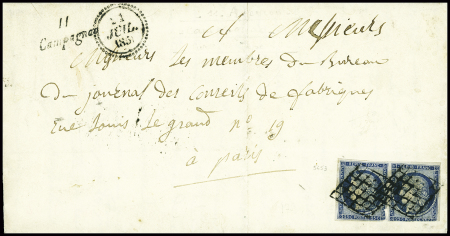 11
Campagnac
21
JUIL.
185
A Messieurs
Messieurs Les membres du Bureau
Du journal des Conseils de fabriques
Rue Louis Le grand n° 19
à paris
REPUB. FRANC.
REPUB. FRANC.